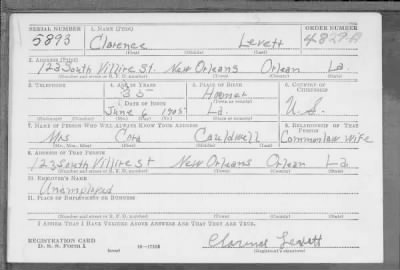 SERIAL NUMBER 1. NAME (Print) ORDER NUMBER
5893 Clarence Levett 4829
(First) (Middle) (Last)
2. ADDRESS (Print)
123 South Villire St. New Orleans Orlean La.
(Number and street or R. F. D. number) (Town) (County) (State)
3. TELEPHONE 4. AGE IN YEARS 5. PLACE OF BIRTH 6. COUNTRY OF CITIZENSHIP
35 Homer
DATE OF BIRTH (Town or county) U.S.
June 6 1905 La.
(Exchange) (No.) (Mo.) (Day) (Yr.) (State or country)
7. NAME OF PERSON WHO WILL ALWAYS KNOW YOUR ADDRESS 8. RELATIONSHIP OF THAT PERSON
Mrs Cora Cauldwell Commonlaw wife
(Mr., Mrs., Miss) (First) (Middle) (Last)
9. ADDRESS OF THAT PERSON
123 South Villire st New Orleans Orlean La
(Number and street or R. F. D. number) (Town) (County) (State)
10. EMPLOYER'S NAME
Unemployed
11. PLACE OF EMPLOYMENT OR BUSINESS
(Number and street or R. F. D. number) (Town) (County) (State)
I AFFIRM THAT I HAVE VERIFIED ABOVE ANSWERS AND THAT THEY ARE TRUE.
REGISTRATION CARD
D. S. S. FORM 1 (over) 16—17105 Clarence Levett
(Registrant's signature)